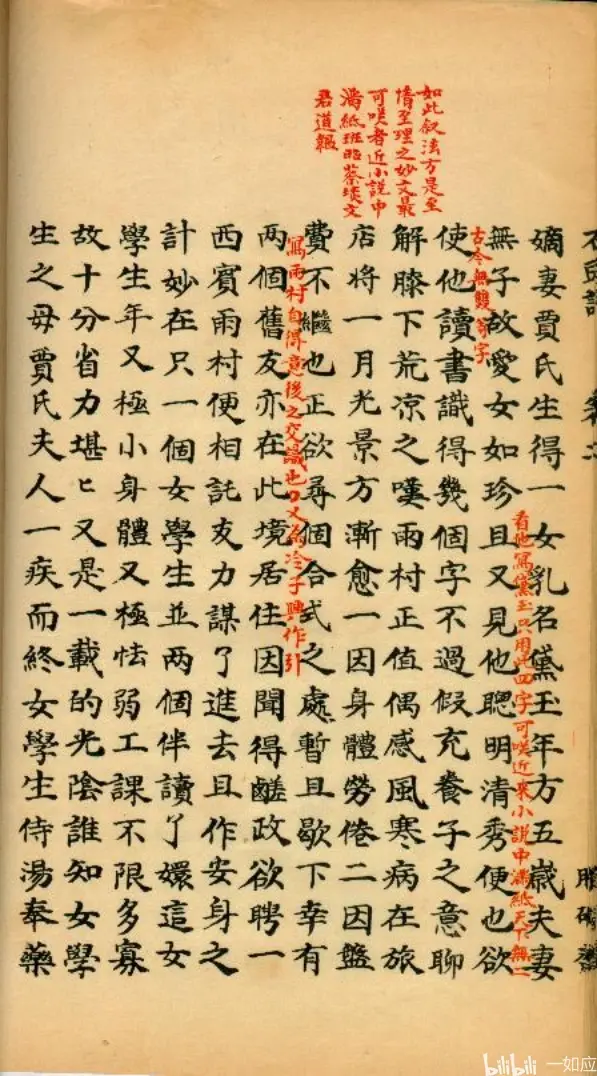 如此叙法方是至
情至理之妙文最
可咲者近小說中
滿紙班昭蔡琰文
君道韞
嫡妻賈氏生得一女乳名黛玉年方五歲夫妻
無子故愛女如珍且又見他聰明清秀便也欲
看他寫黛玉只用此四字可咲近來小說中滿紙天下無二
古今無雙等字
使他讀書識得幾個字不過假充養子之意聊
解膝下荒凉之嘆雨村正值偶感風寒病在旅
店將一月光景方漸愈一因身體勞倦二因盤
費不繼也正欲尋個合式之處暫且歇下幸有
兩個舊友亦在此境居住因聞得鹺政欲聘一
寫雨村自得意後之交識也又為冷子興作引
西賓雨村便相託友力謀了進去且作安身之
計妙在只一個女學生並兩個伴讀丫嬛這女
學生年又極小身體又極怯弱工課不限多寡
故十分省力堪〻又是一載的光陰誰知女學
生之母賈氏夫人一疾而終女學生侍湯奉藥
bilibili 一如应